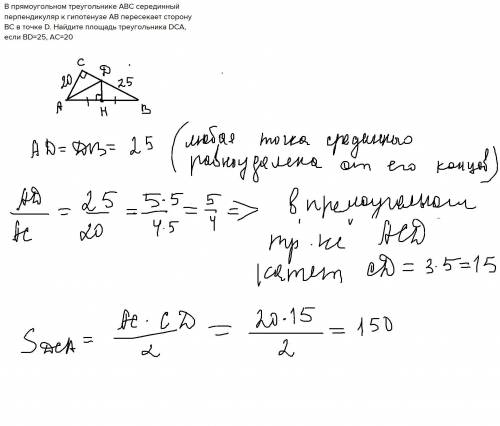 В прямоугольном треугольнике ABC серединный
перпендикуляр к гипотенузе AB пересекает сторону
BC в точке D. Найдите площадь треугольника DCA,
если BD=25, AC=20
C
D
20
25
A
H
B
AD = DB = 25 (любая точка срединного
равноудалена от его концов)
AD/AC = 25/20 = 5·5/4·5 = 5/4 => в прямоугольном
тр-ке ACD
катет CD = 3·5 = 15
S DCA = AC · CD / 2 = 20·15 / 2 = 150